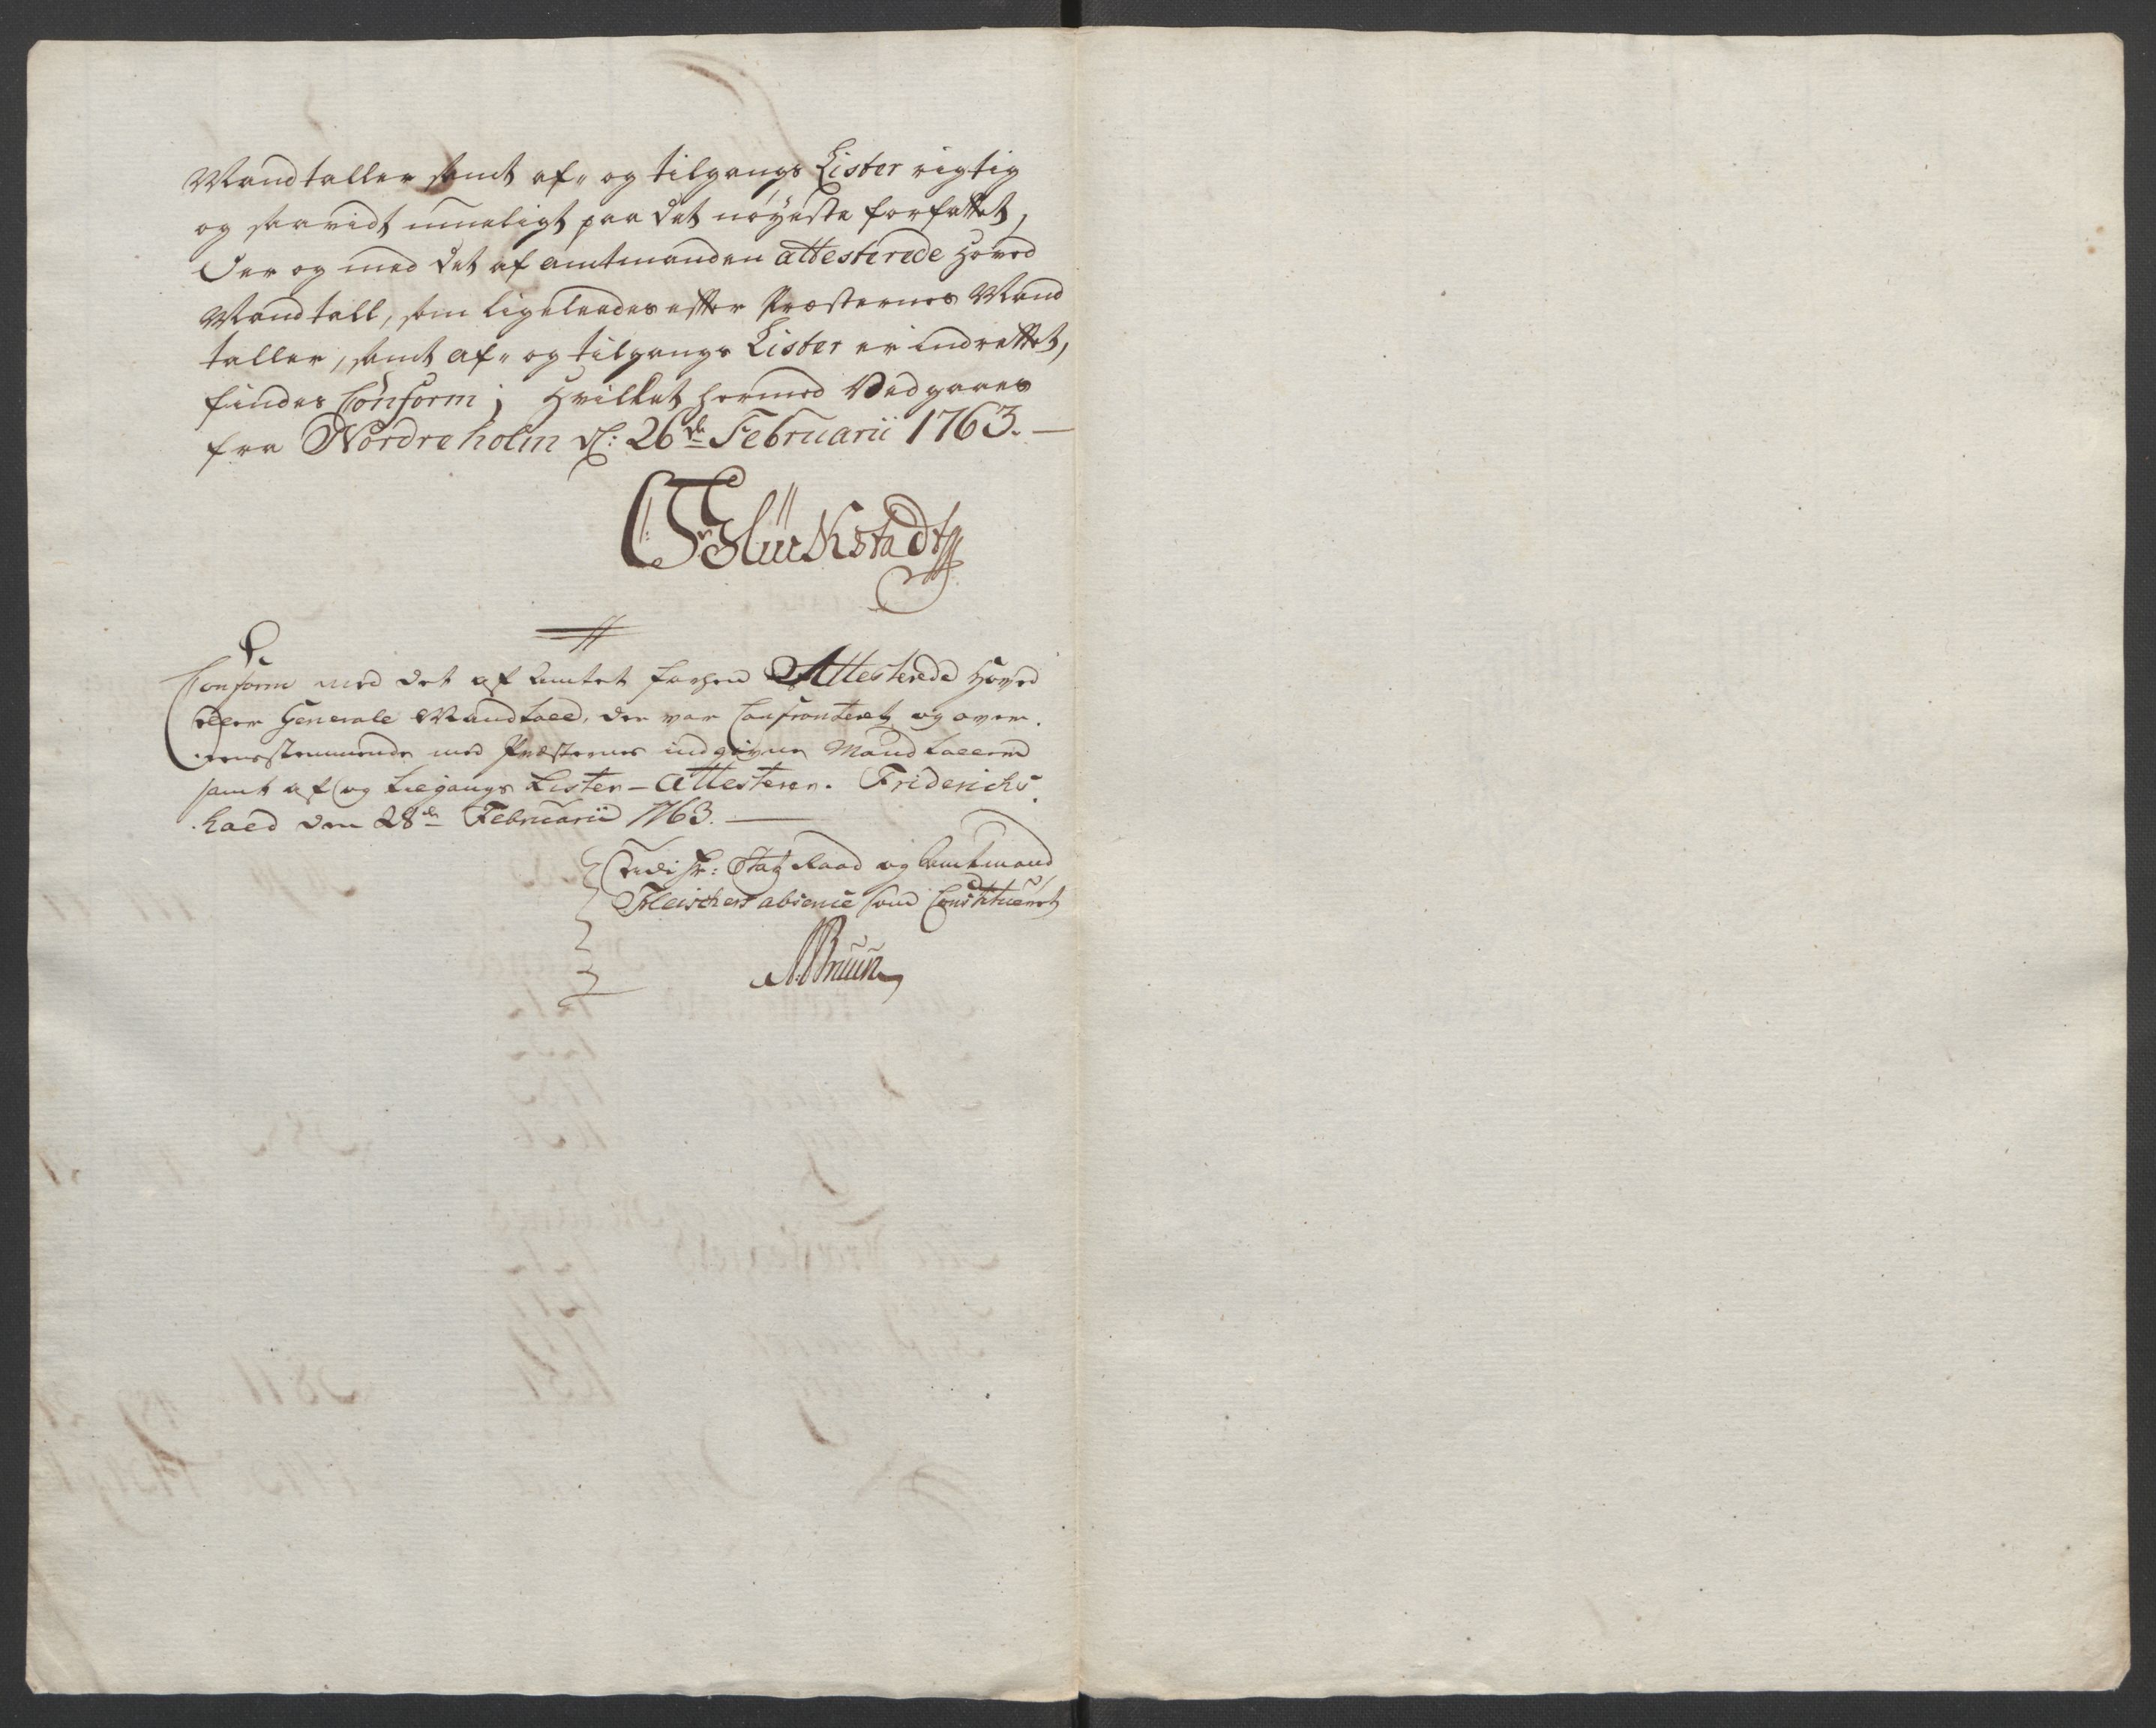 Mandtaller samt af- og tilgangs Lister rigtig
og saavidt mueligt paa det nøyeste forfattet,
Der og med det af amtmanden attesterede Hoved
Mandtall, som ligeleedes efter Præsternes Mand
taller, samt af- og tilgangs Lister er indrettet,
findes Conform; Hvilket hermed Vedgaaes
fra Nordreholm d: 26de Februarii 1763. —
CFGlückstadt
Conform med det af Amtet forhen Attesterede Hoved
eller Generale Mandtall, der var Confronteret og over-
eensstemmende med Præsternes indgivne Mandtaller
samt af og tilgangs Lister - attesterer. Friderichs
hald den 28de Februarii 1763. —
udi Hr: Etatz Raad og Amtmand
Fleischers absence som Constitueret
NBruun